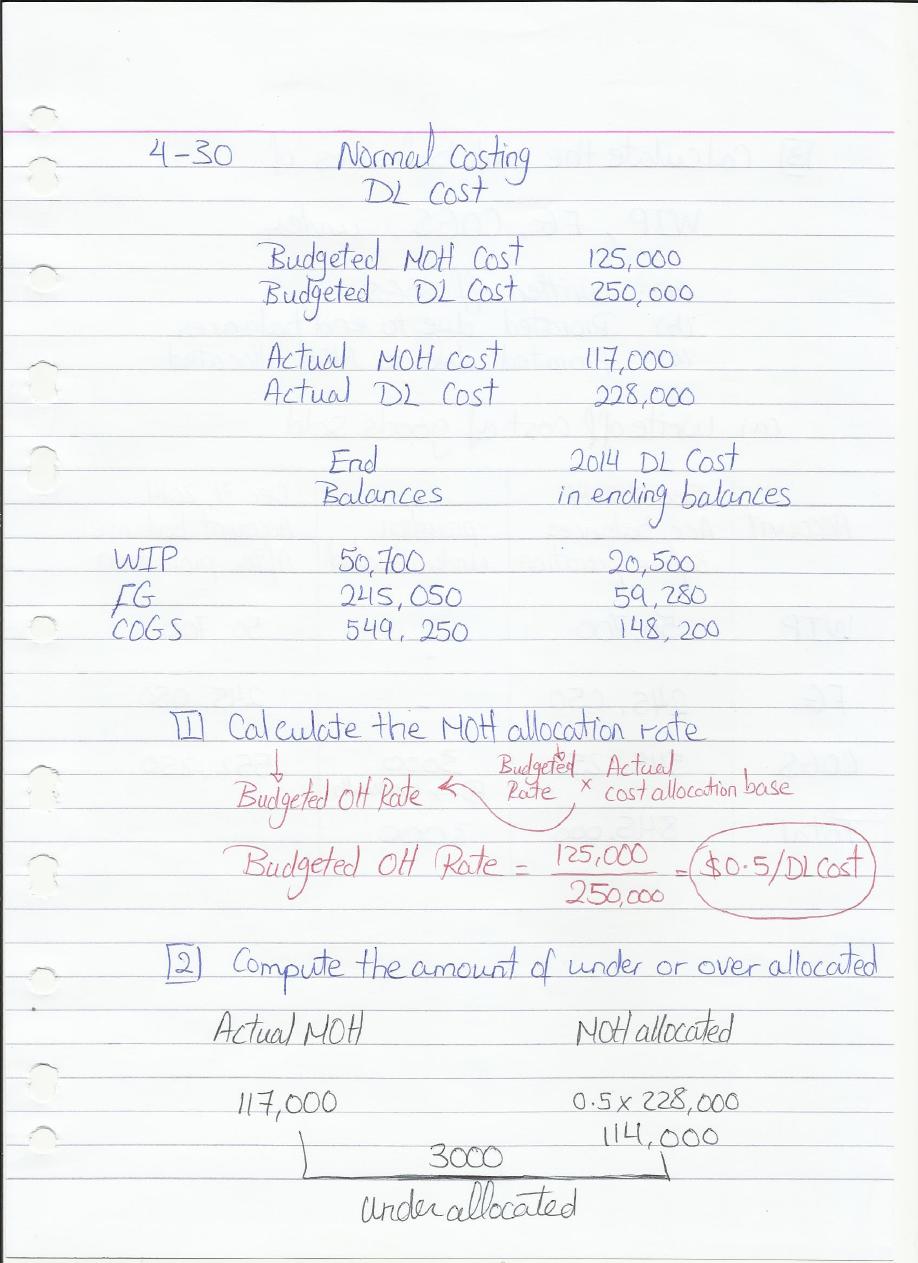 4-30 Normal Costing
DL Cost
Budgeted MOH Cost 125,000
Budgeted DL Cost 250,000
Actual MOH cost 117,000
Actual DL Cost 228,000
End 2014 DL Cost
Balances in ending balances
WIP 50,700 20,500
FG 245,050 59,280
COGS 549,250 148,200
1 Calculate the MOH allocation rate
Budgeted Actual
Budgeted OH Rate Rate × cost allocation base
Budgeted OH Rate = 125,000 / 250,000 = $0.5/DL Cost
2 Compute the amount of under or over allocated
Actual MOH MOH allocated
117,000 0.5 x 228,000
114,000
3000
under allocated